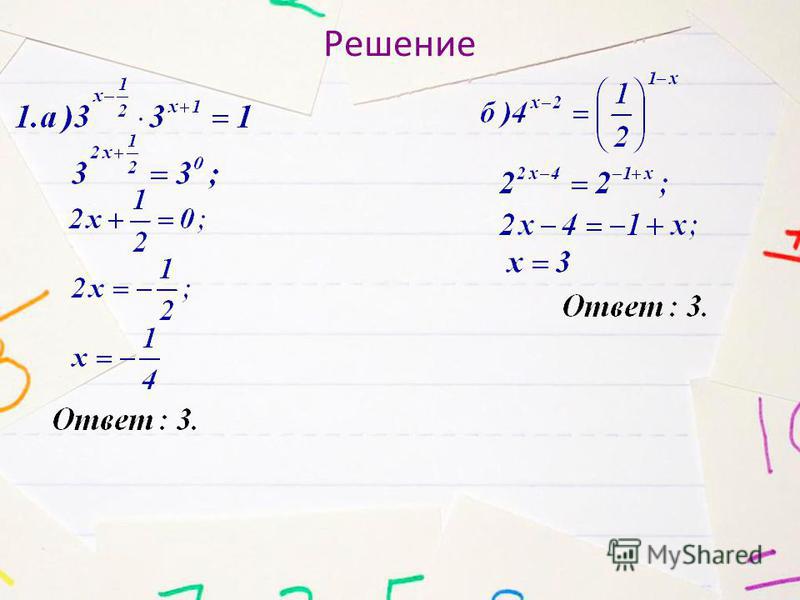 Решение
1.а)3^{x-\frac{1}{2}} · 3^{x+1} = 1
3^{2x+\frac{1}{2}} = 3^0;
2x + \frac{1}{2} = 0;
2x = -\frac{1}{2};
x = -\frac{1}{4}
Ответ : 3.
б)4^{x-2} = \left(\frac{1}{2}\right)^{1-x}
2^{2x-4} = 2^{-1+x};
2x - 4 = -1 + x;
x = 3
Ответ : 3.
MyShared